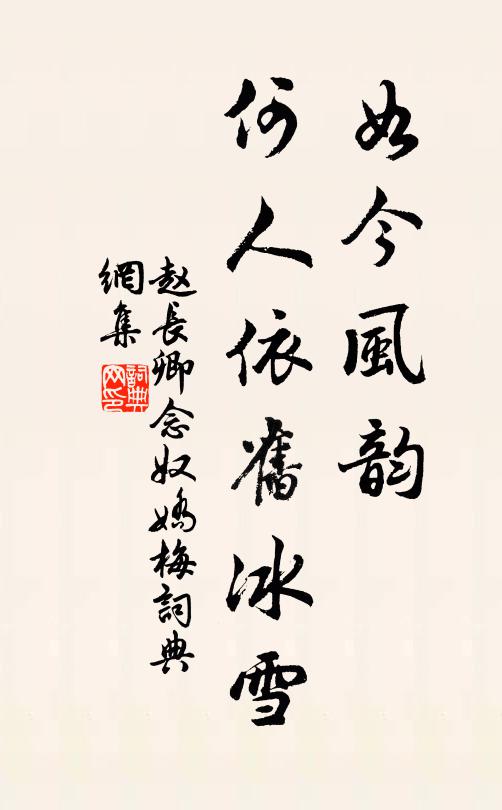 如今風韵
何人依舊冰雪
赵長卿念奴嬌梅詞典
網集
詞典
网印